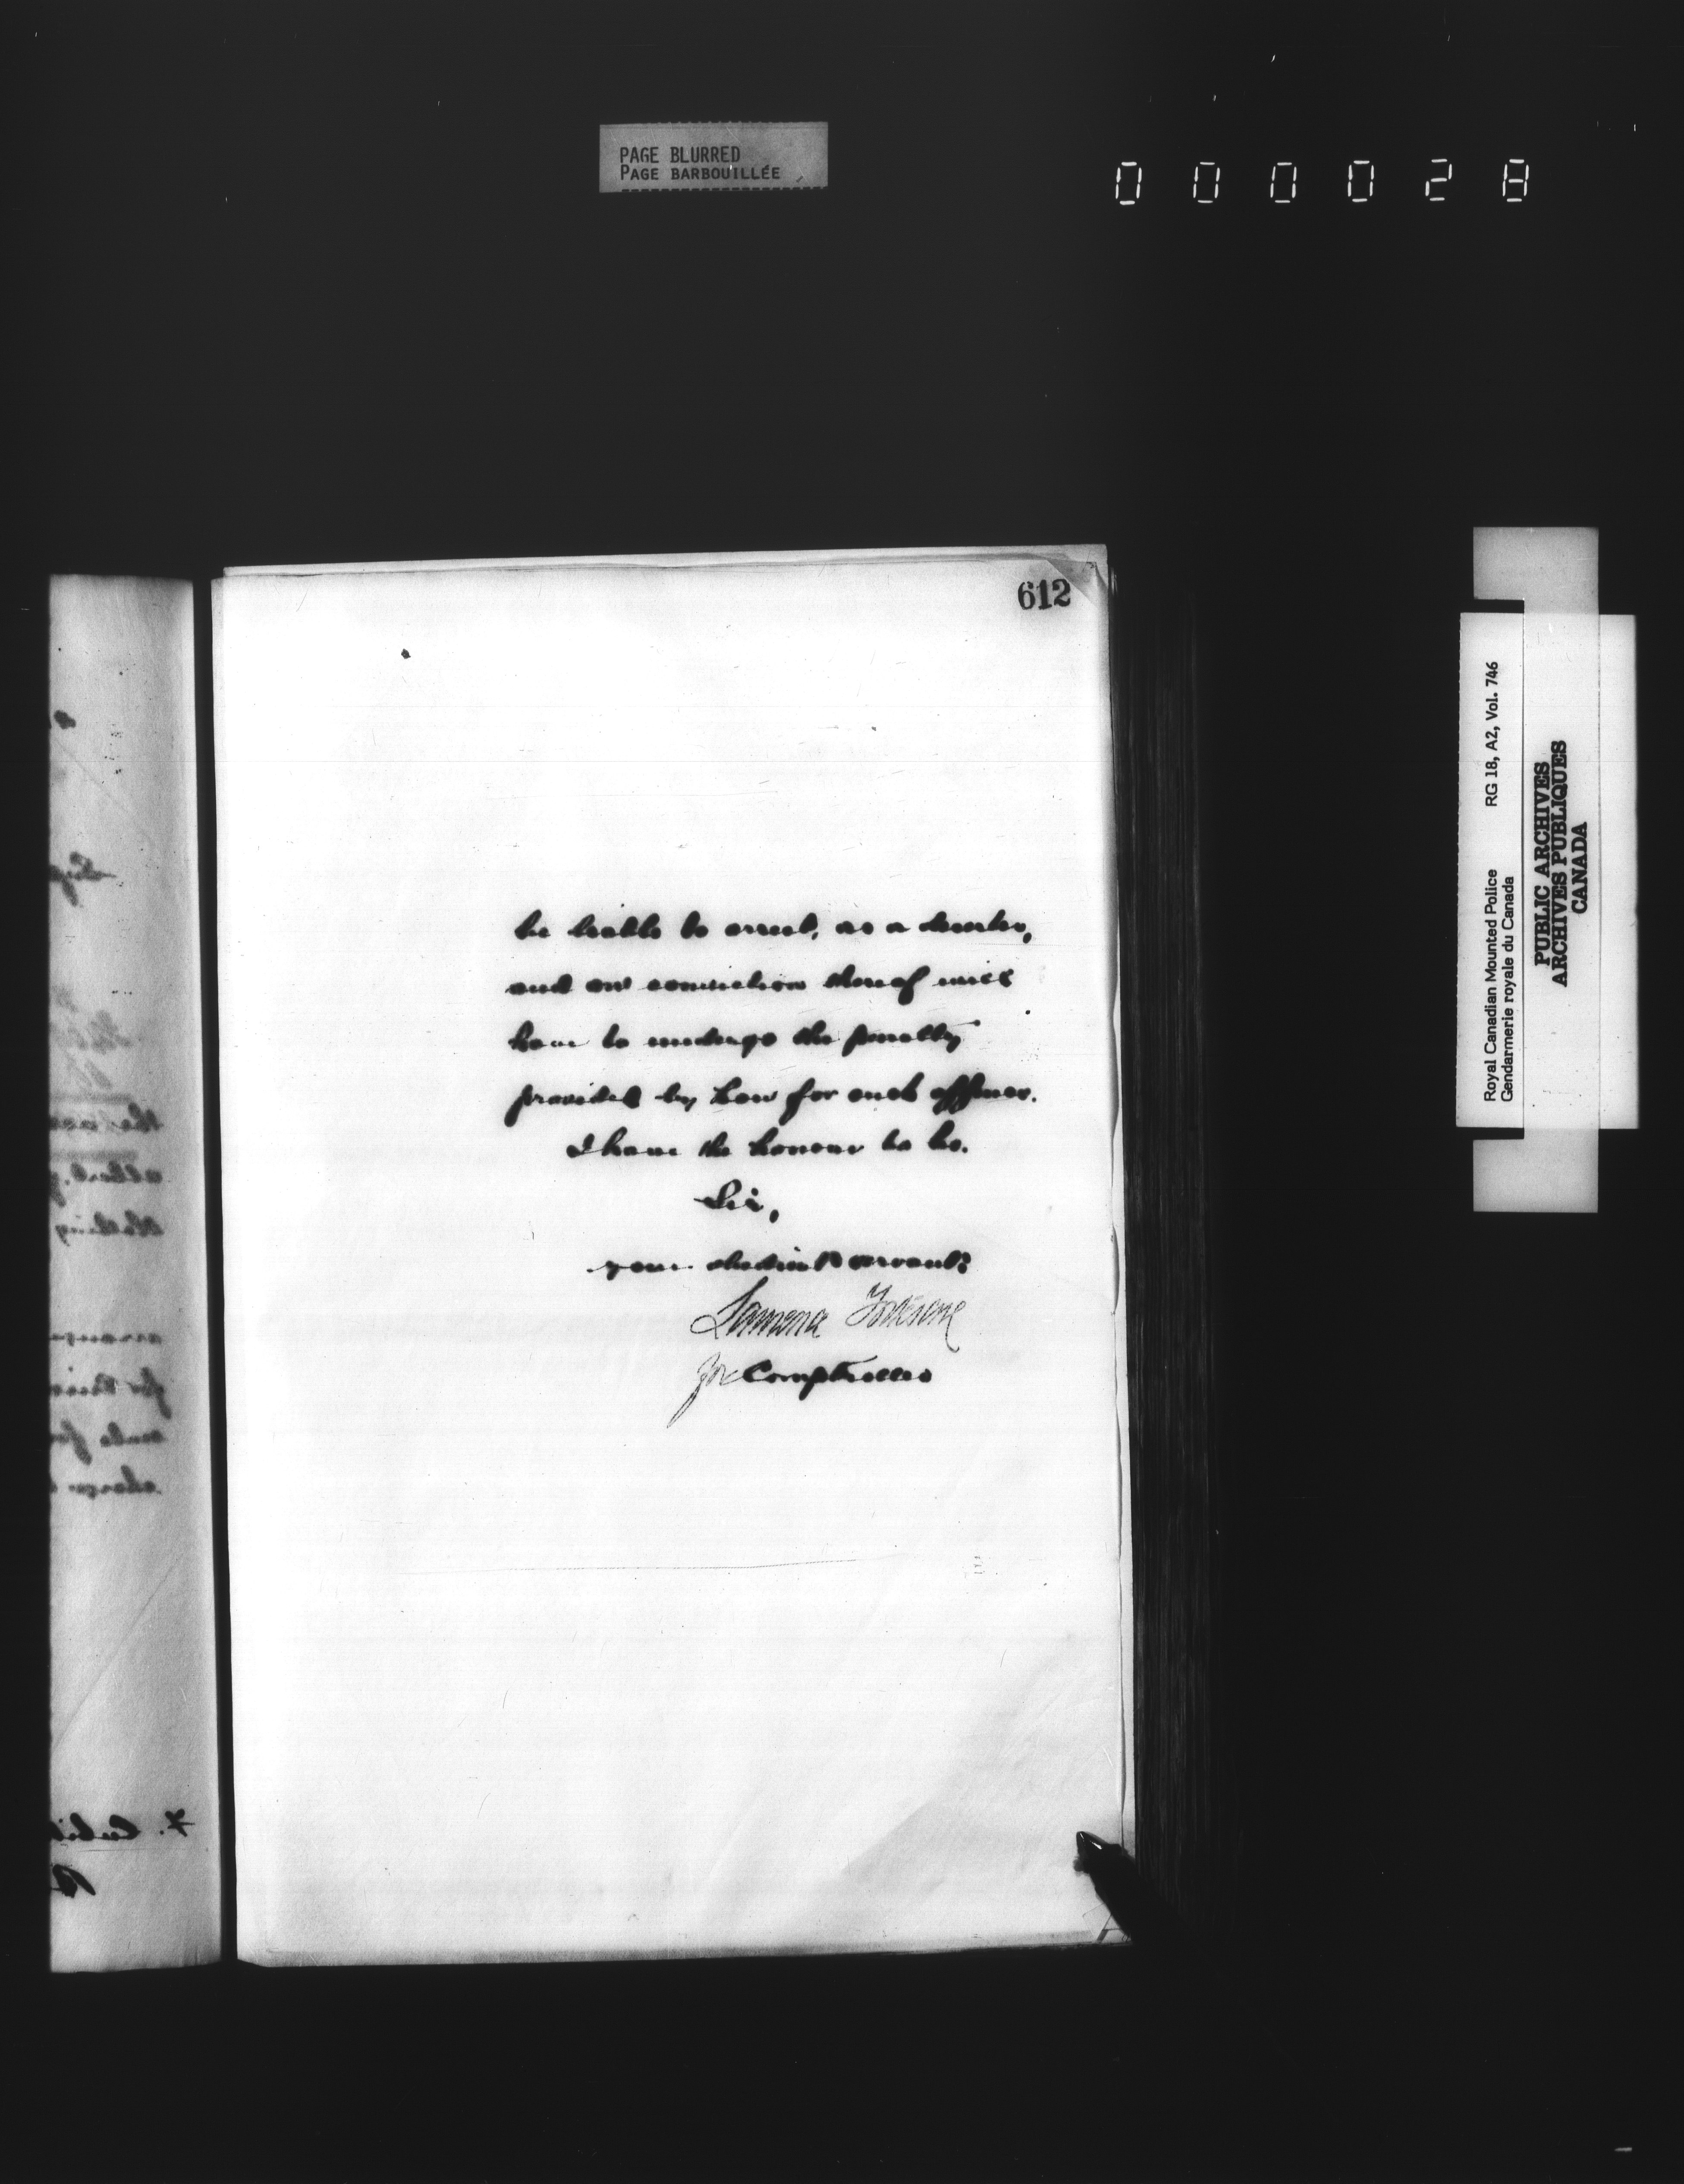 PAGE BLURRED
PAGE BARBOUILLÉE
000028
612
be liable to arrest, as a deserter,
and on conviction thereof will
have to undergo the penalty
provided by law for such offence.
I have the honour to be.
Sir,
your obedient servant,
Lawrence Fortescue
for Comptroller
Royal Canadian Mounted Police RG 18, A2, Vol. 746
Gendarmerie royale du Canada
PUBLIC ARCHIVES
ARCHIVES PUBLIQUES
CANADA